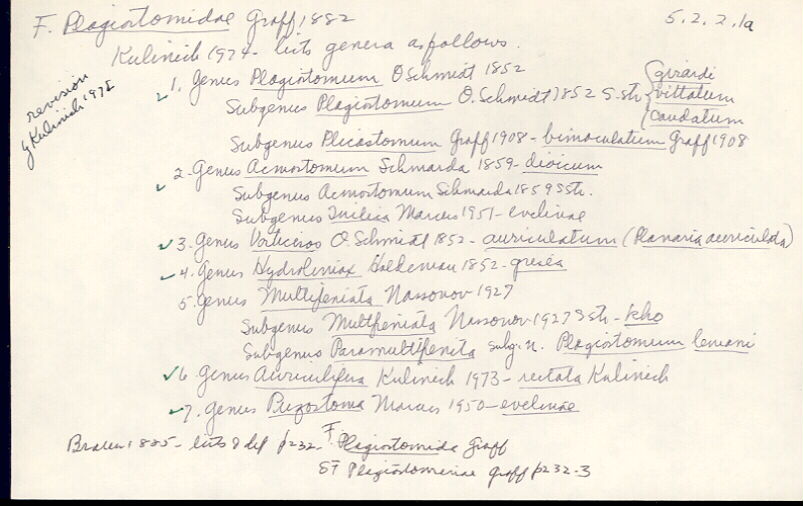 F. Plagiostomidae Graff 1882 5.2.2.1a
Kulinich 1974 - lists genera as follows.
revision
by Kulinich 1974
1. Genus Plagiostomum O Schmidt 1852
Subgenus Plagiostomum O. Schmidt 1852 S. str. { girardi
vittatum
caudatum
Subgenus Plicastomum Graff 1908 - bimaculatum Graff 1908
2. Genus Acmostomum Schmarda 1859 - dioicum
Subgenus Acmostomum Schmarda 1859 S str.
Subgenus Inilica Marcus 1951 - evelinae
3. Genus Vorticeros O. Schmidt 1852 - auriculatum (Planaria auriculata)
4. Genus Hydrolimax Haldeman 1852 - grisea
5. Genus Multipeniata Nassonov 1927
Subgenus Multpeniata Nassonov 1927 S str - kho
Subgenus Paramultipenita subg. n. Plagiostomum lemani
6. Genus Auriculifera Kulinich 1973 - rectata Kulinich
7. Genus Puzostoma Marcus 1950 - evelinae
Braun 1885 - lists & def p 232 - F. Plagiostomida Graff
SF Plagiostominae Graff p 232-3